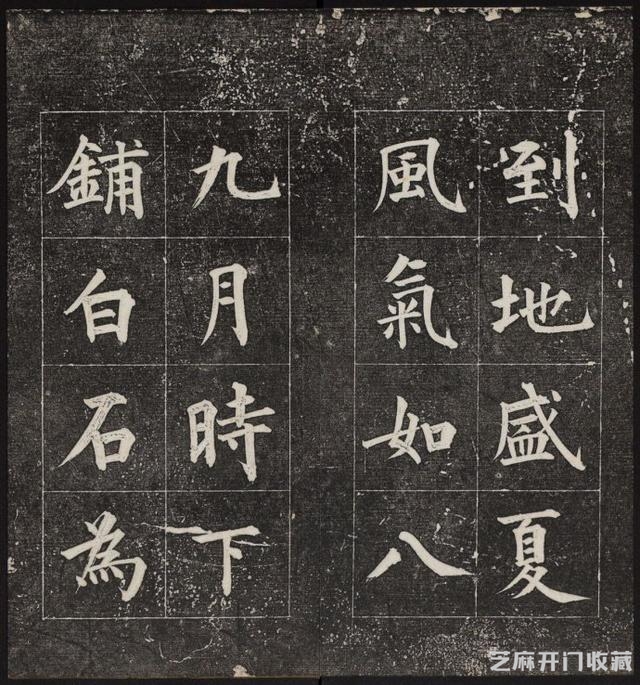 到地盛夏
風氣如八
九月時下
鋪白石為
芝麻开门收藏